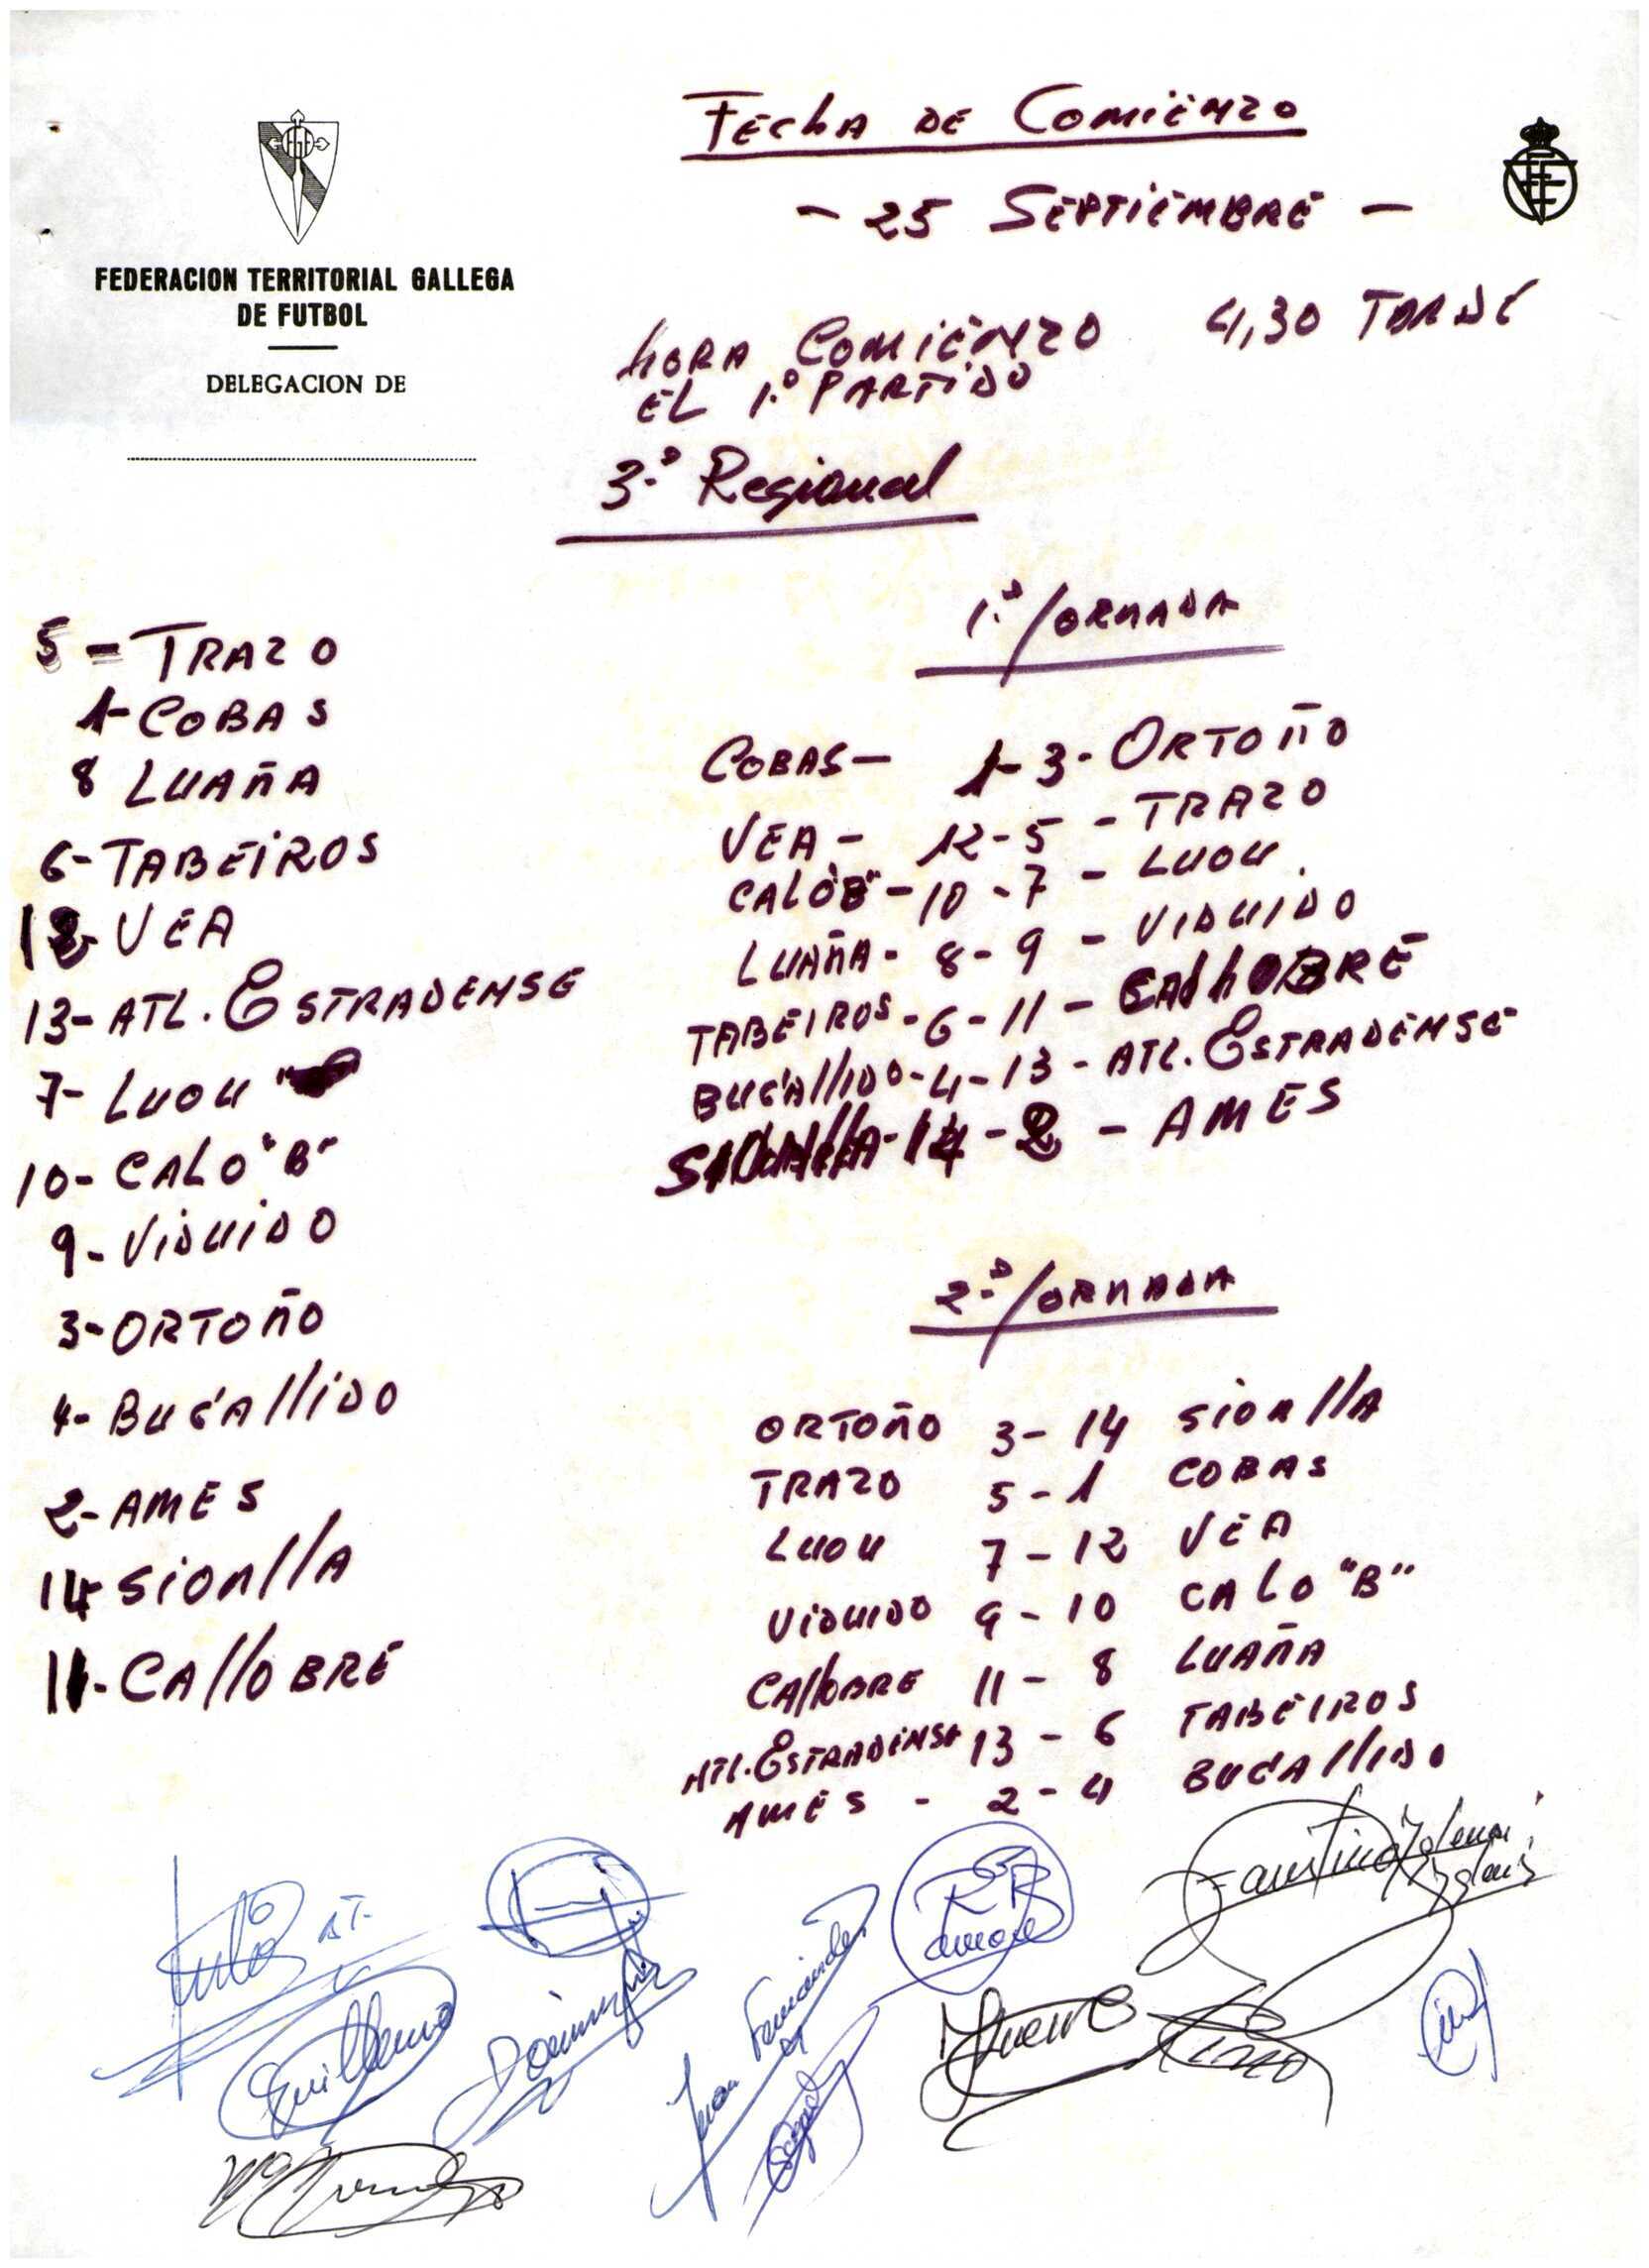 FECHA DE COMIENZO
- 25 SEPTIEMBRE -
FEDERACION TERRITORIAL GALLEGA
DE FUTBOL
DELEGACION DE
HORA COMIENZO 4,30 TARDE
EL 1.º PARTIDO
3.ª Regional
5 - TRAZO
1- COBAS
8 LUAÑA
6- TABEIROS
12- VEA
13- ATL. ESTRADENSE
7- LUOU "
10- CALO "B"
9- VIDUIDO
3- ORTOÑO
4- BUGALLIDO
2- AMES
14 SIONLLA
11- CALLOBRE
1.ª JORNADA
COBAS - 1- 3 - ORTOÑO
VEA - 12 - 5 - TRAZO
CALO "B" - 10 - 7 - LUOU.
LUAÑA - 8 - 9 - VIDUIDO
TABEIROS - 6 - 11 - CALLOBRE
BUGALLIDO - 4 - 13 - ATL. ESTRADENSE
SIONLLA - 14 - 2 - AMES
2.ª JORNADA
ORTOÑO 3 - 14 SIONLLA
TRAZO 5 - 1 COBAS
LUOU 7 - 12 VEA
VIDUIDO 9 - 10 CALO "B"
CALLOBRE 11 - 8 LUAÑA
ATL. ESTRADENSE 13 - 6 TABEIROS
AMES - 2 - 4 BUGALLIDO
Faustino
Guillermo
Juan Fernandez